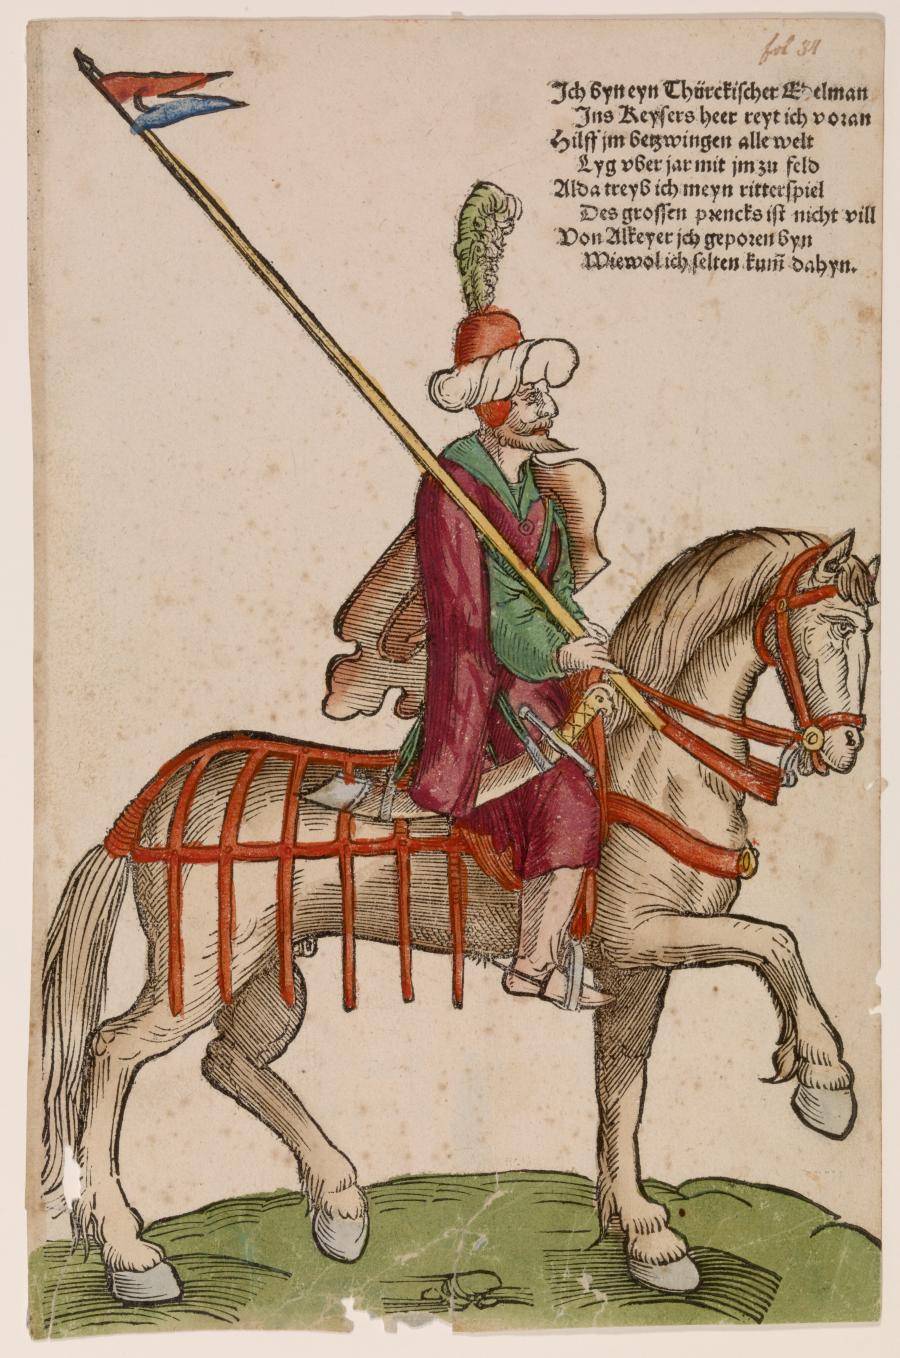 fol 34
Jch byn eyn Thürckischer Edelman
Jns Keysers heer reyt ich voran
Hilff jm betzwingen alle welt
Lyg vber jar mit jm zu feld
Alda treyb ich meyn ritterspiel
Des grossen prencks ist nicht vill
Von Alkeyer jch geporen byn
Wiewol ich selten kum̄ dahyn.